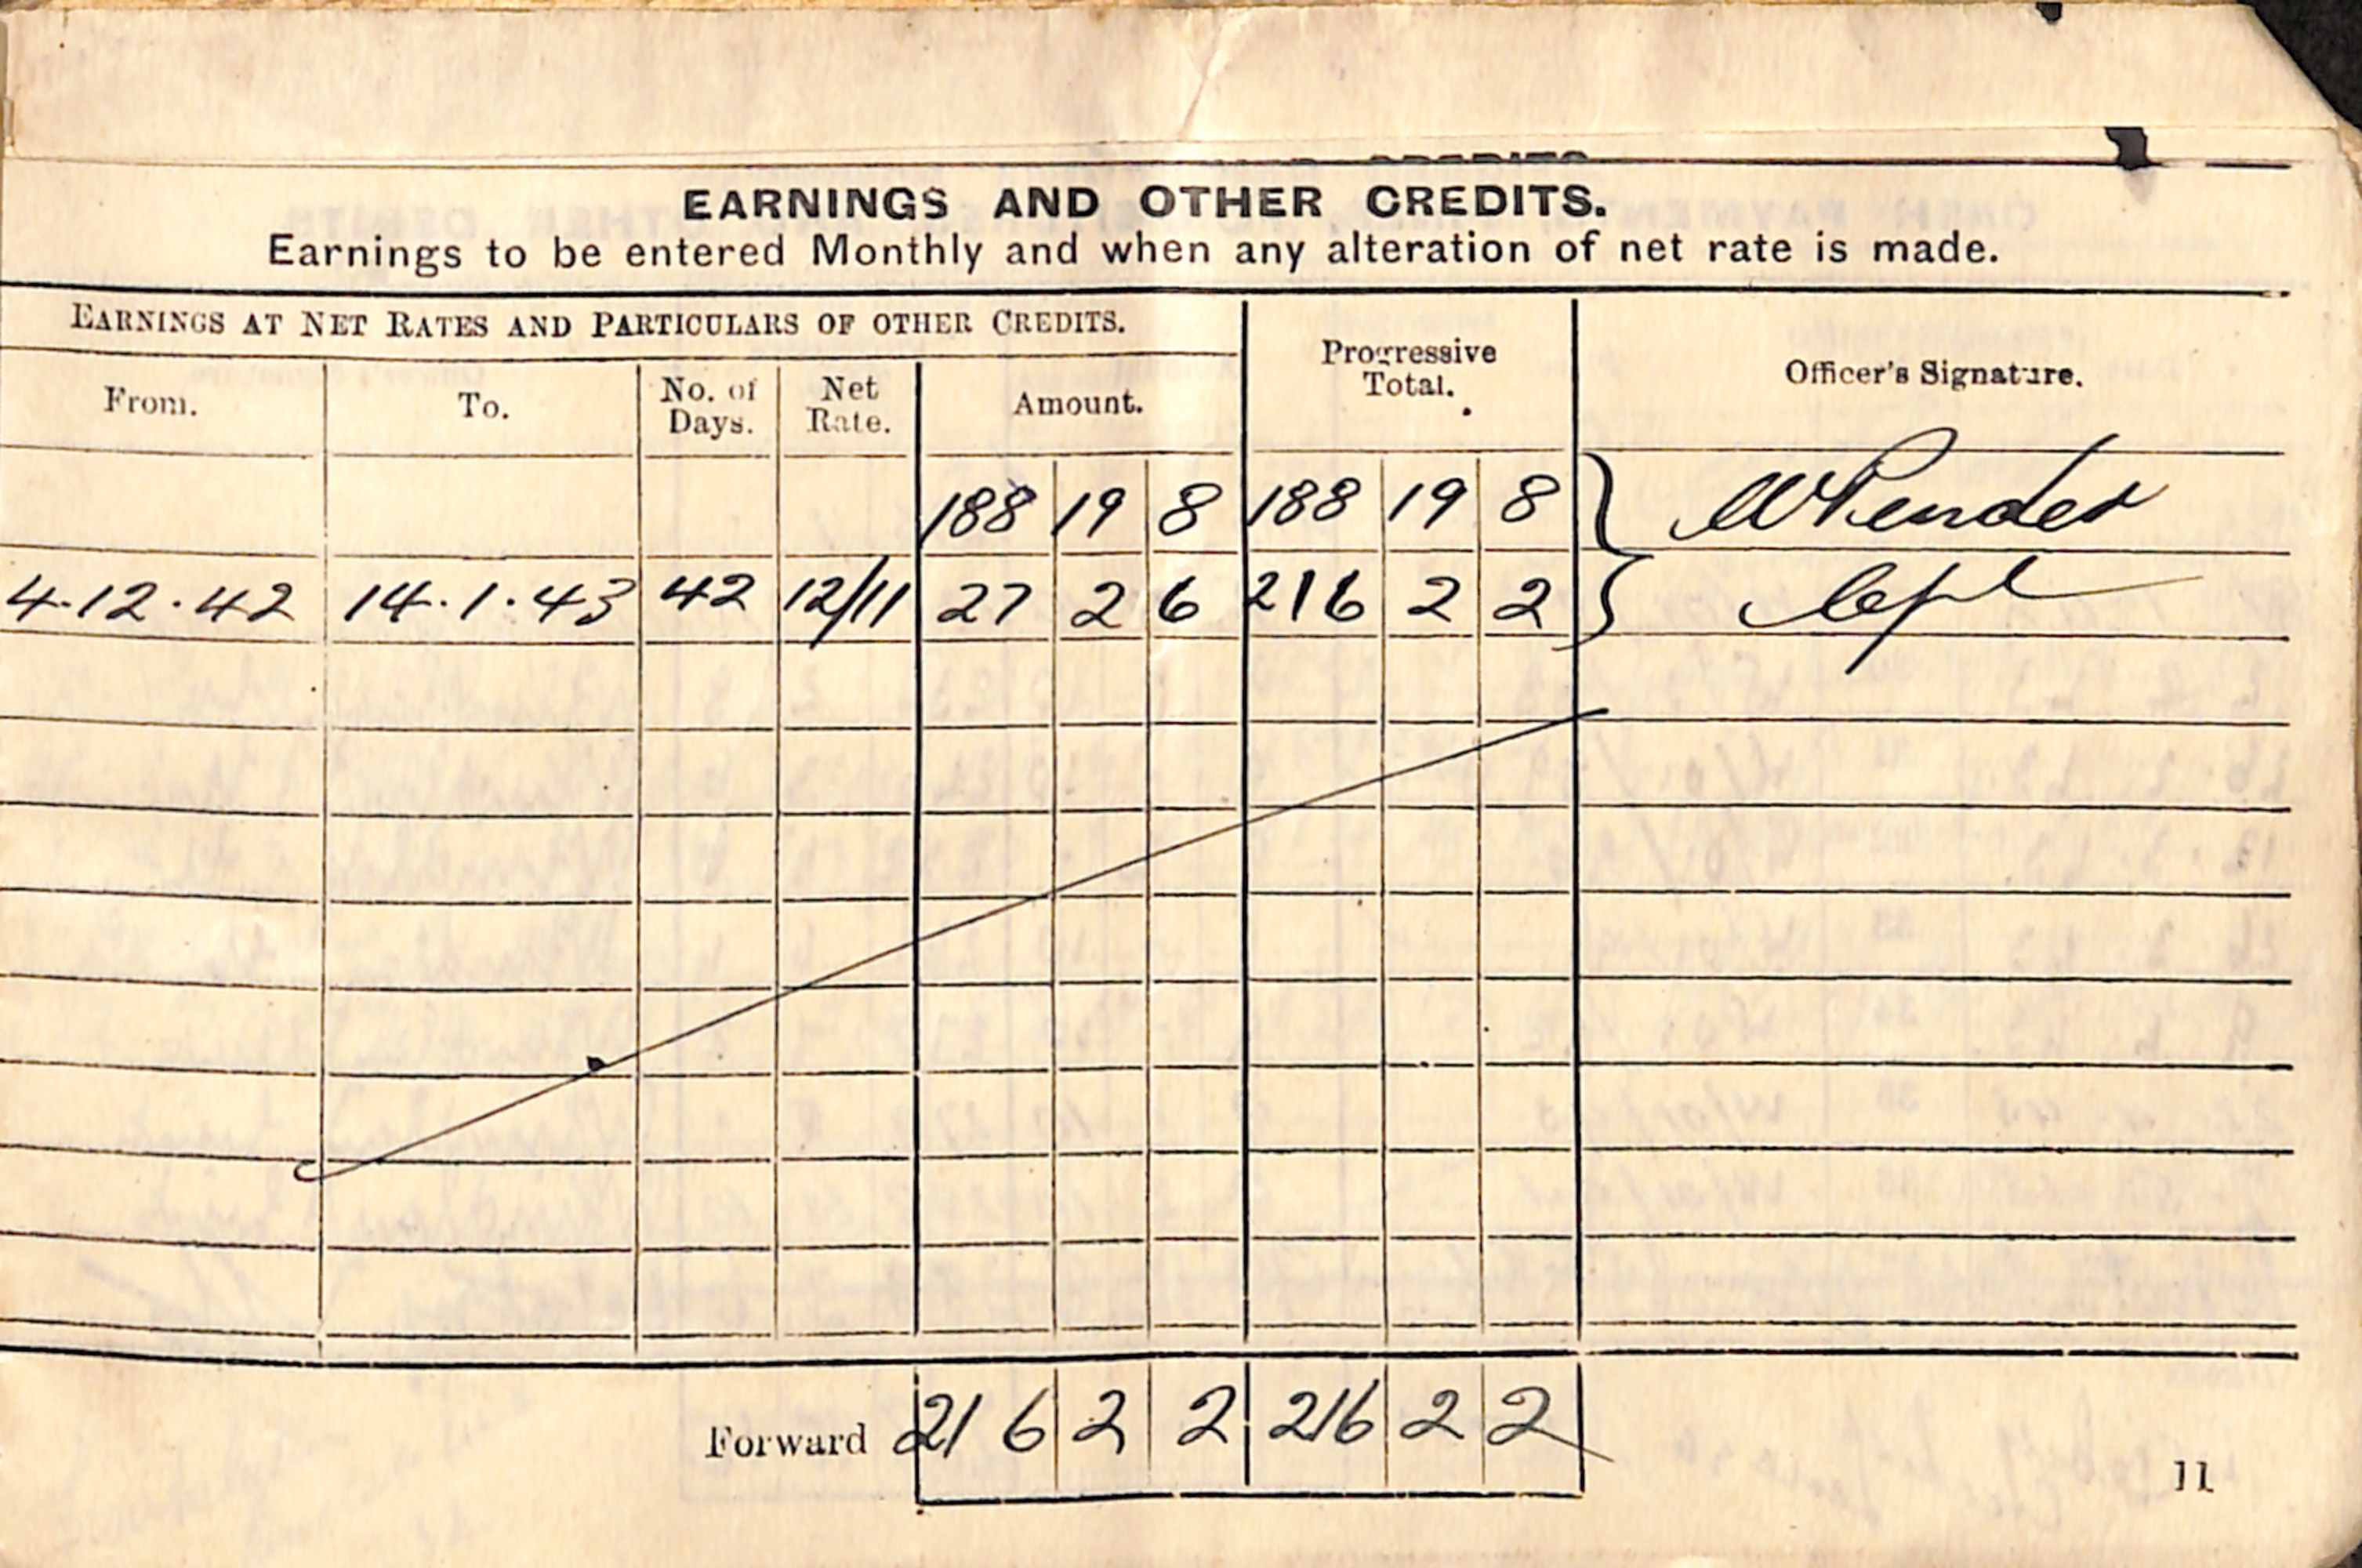 EARNINGS AND OTHER CREDITS.
Earnings to be entered Monthly and when any alteration of net rate is made.
EARNINGS AT NET RATES AND PARTICULARS OF OTHER CREDITS.
Progressive Total.
Officer's Signature.
From. To. No. of Days. Net Rate. Amount.
188 19 8 188 19 8
4.12.42 14.1.43 42 12/11 27 2 6 216 2 2
Forward 216 2 2 216 2 2
11